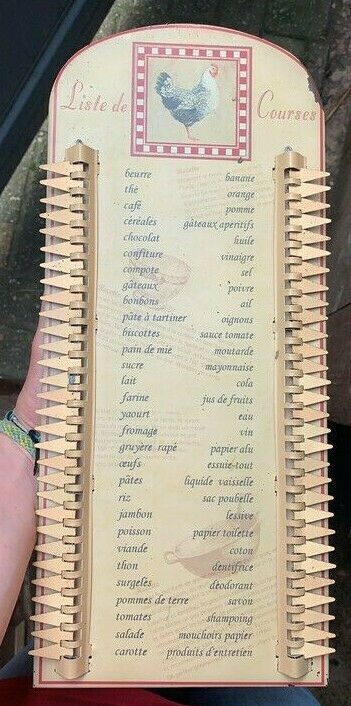 Liste de Courses
beurre
thé
café
céréales
chocolat
confiture
compote
gâteaux
bonbons
pâte à tartiner
biscottes
pain de mie
sucre
lait
farine
yaourt
fromage
gruyère rapé
œufs
pâtes
riz
jambon
poisson
viande
thon
surgelés
pommes de terre
tomates
salade
carotte
banane
orange
pomme
gâteaux aperitifs
huile
vinaigre
sel
poivre
ail
oignons
sauce tomate
moutarde
mayonnaise
cola
jus de fruits
eau
vin
papier alu
essuie-tout
liquide vaisselle
sac poubelle
lessive
papier toilette
coton
dentifrice
déodorant
savon
shampoing
mouchoirs papier
produits d'entretien